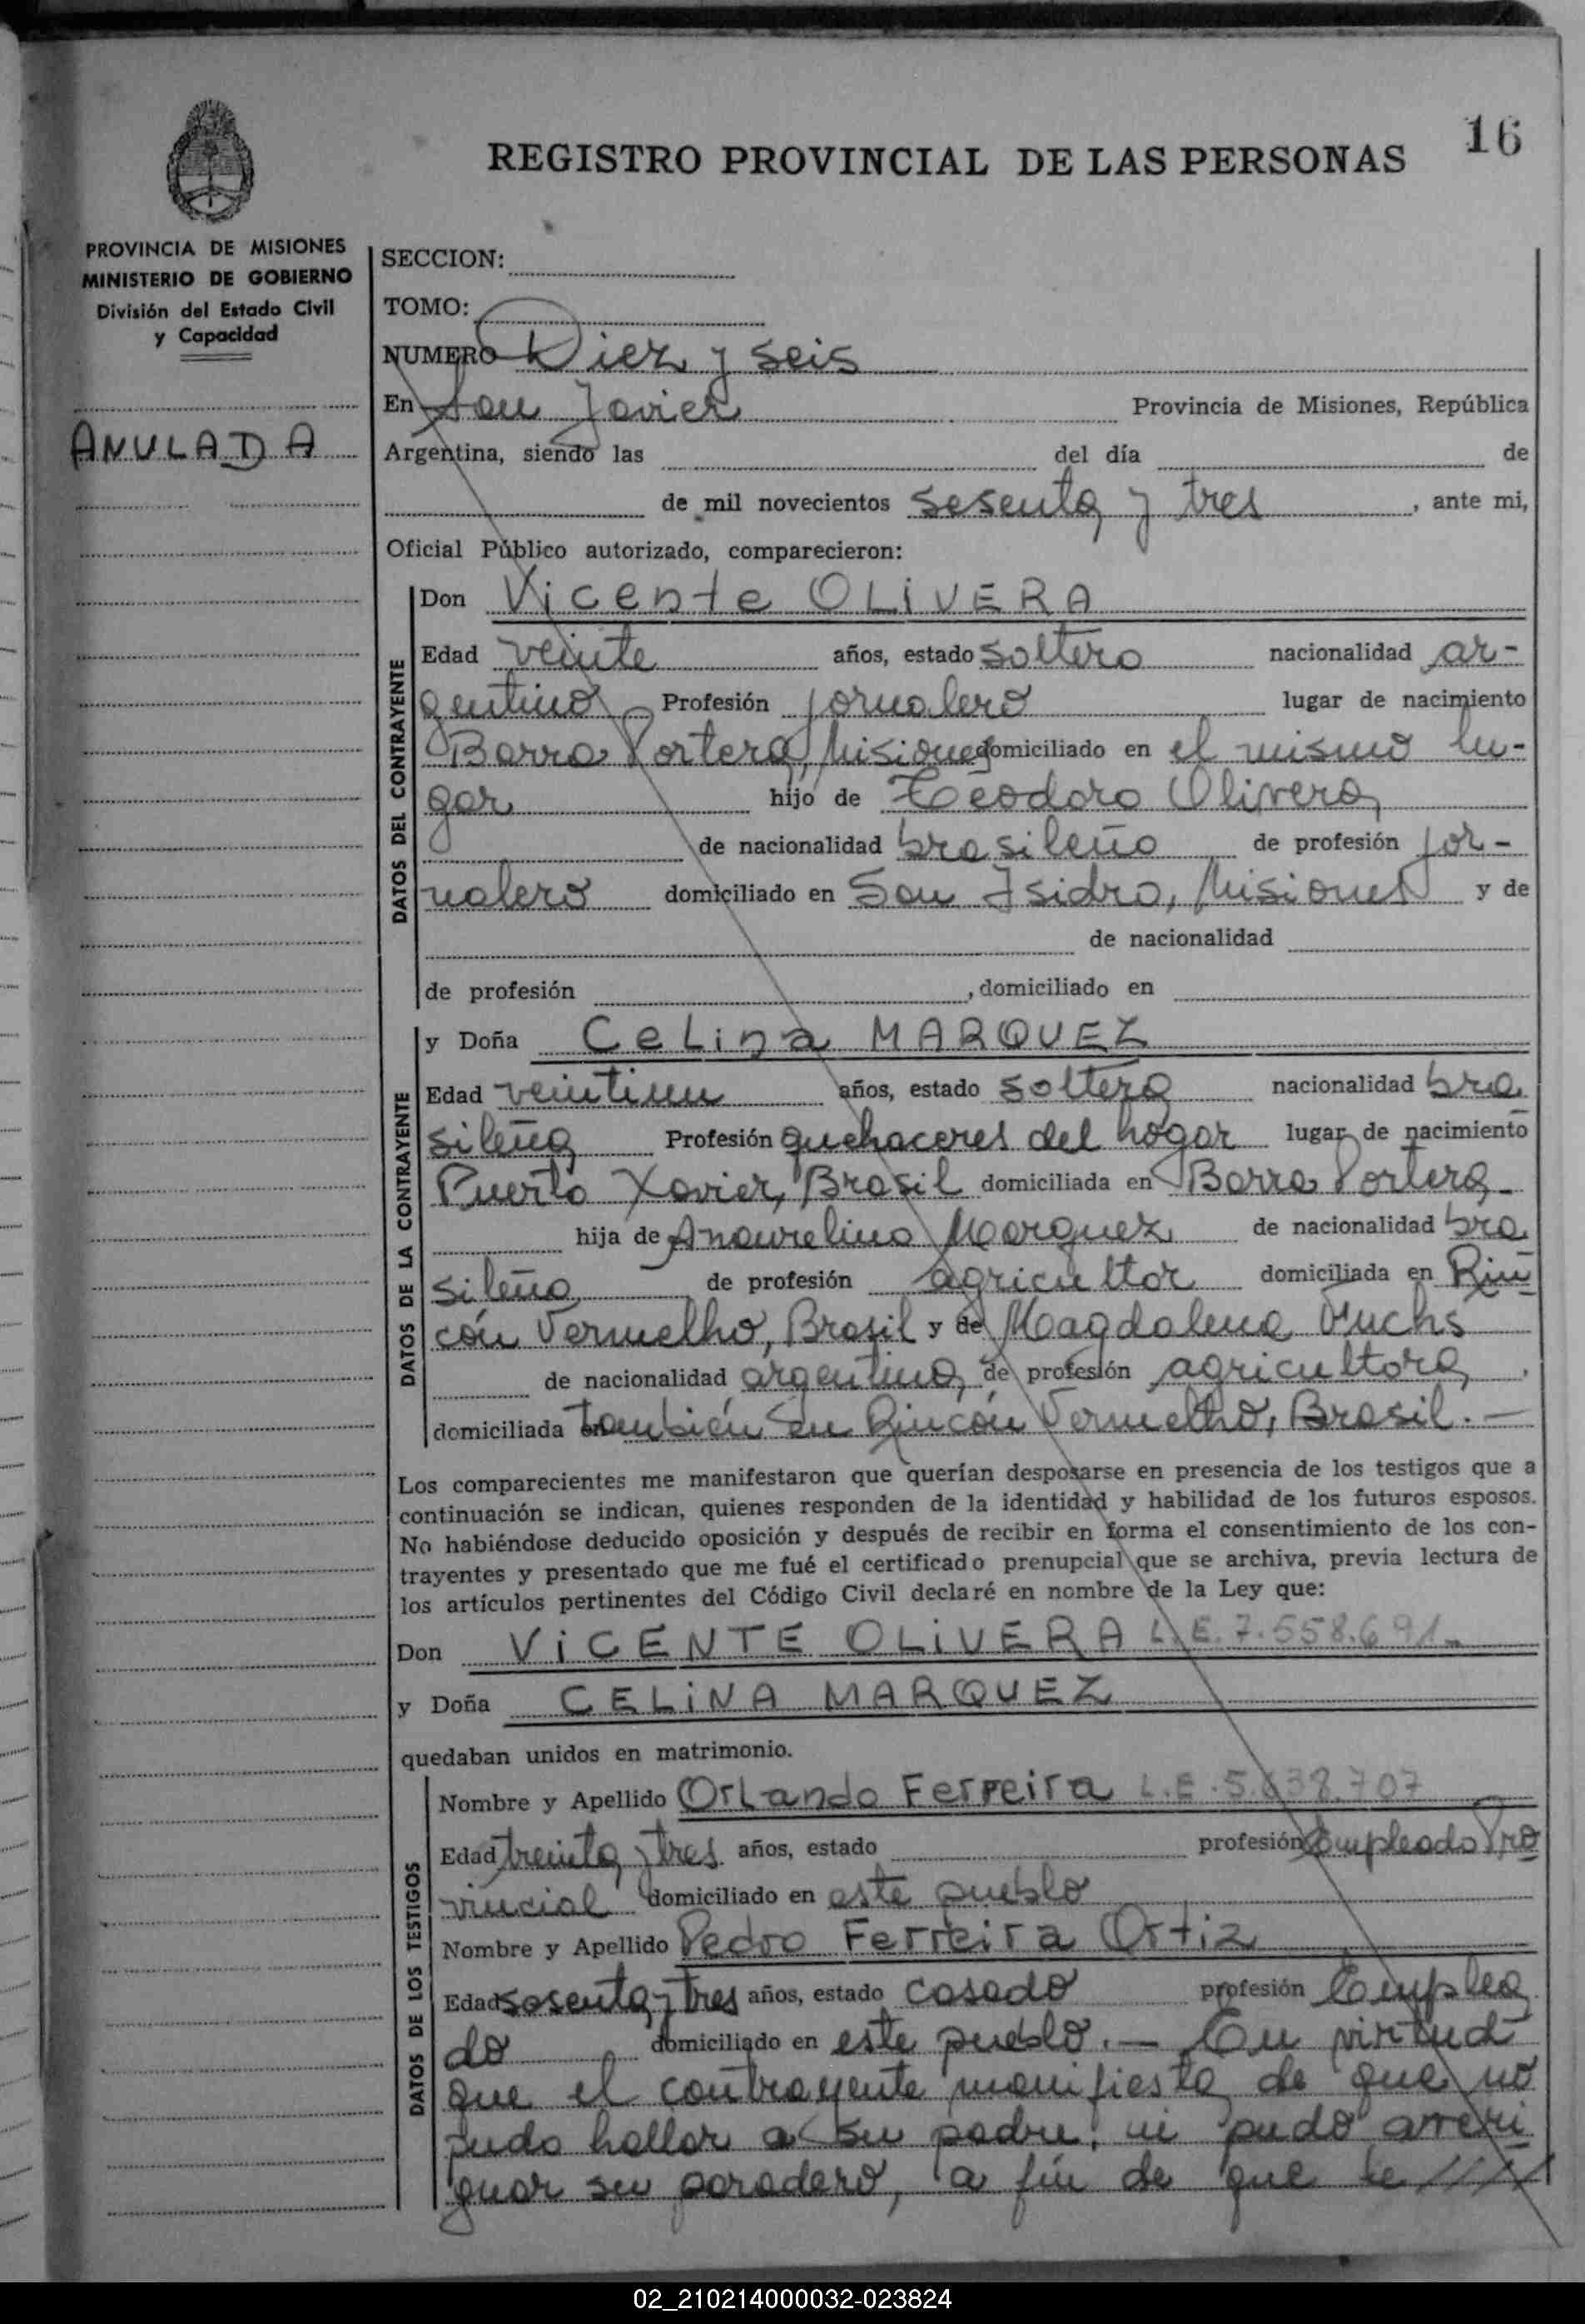 16
REGISTRO PROVINCIAL DE LAS PERSONAS
PROVINCIA DE MISIONES
MINISTERIO DE GOBIERNO
División del Estado Civil
y Capacidad
ANULADA
SECCION:
TOMO:
NUMERO Diez y seis
En San Javier Provincia de Misiones, República
Argentina, siendo las del día de
de mil novecientos sesenta y tres, ante mi,
Oficial Público autorizado, comparecieron:
DATOS DEL CONTRAYENTE
Don Vicente OLIVERA
Edad veinte años, estado soltero nacionalidad ar-
gentino Profesión jornalero lugar de nacimiento
Barra Portera, Misiones domiciliado en el mismo lu-
gar hijo de Teodoro Olivera
de nacionalidad brasileño de profesión jor-
nalero domiciliado en San Isidro, Misiones y de
de nacionalidad
de profesión , domiciliado en
DATOS DE LA CONTRAYENTE
y Doña Celina MARQUEZ
Edad veintiun años, estado soltera nacionalidad bra
sileña Profesión quehaceres del hogar lugar de nacimiento
Puerto Xavier, Brasil domiciliada en Barra Portera
hija de Anaurelino Marquez de nacionalidad bra
sileño de profesión agricultor domiciliada en Rin
cón Vermelho, Brasil y de Magdalena Fuchs
de nacionalidad argentina, de profesión agricultora,
domiciliada también en Rincón Vermelho, Brasil. —
Los comparecientes me manifestaron que querían desposarse en presencia de los testigos que a
continuación se indican, quienes responden de la identidad y habilidad de los futuros esposos.
No habiéndose deducido oposición y después de recibir en forma el consentimiento de los con-
trayentes y presentado que me fué el certificado prenupcial que se archiva, previa lectura de
los artículos pertinentes del Código Civil declaré en nombre de la Ley que:
Don VICENTE OLIVERA L.E. 7.558.691.
y Doña CELINA MARQUEZ
quedaban unidos en matrimonio.
DATOS DE LOS TESTIGOS
Nombre y Apellido Orlando Ferreira L.E. 5.638.707
Edad treinta y tres años, estado profesión Empleado Pro
vincial domiciliado en este pueblo
Nombre y Apellido Pedro Ferreira Ortiz
Edad sesenta y tres años, estado casado profesión Emplea
do domiciliado en este pueblo. — En virtud
que el contrayente manifiesta de que no
pudo hallar a su padre, ni pudo averi
guar su paradero, a fin de que le ////
02_210214000032-023824